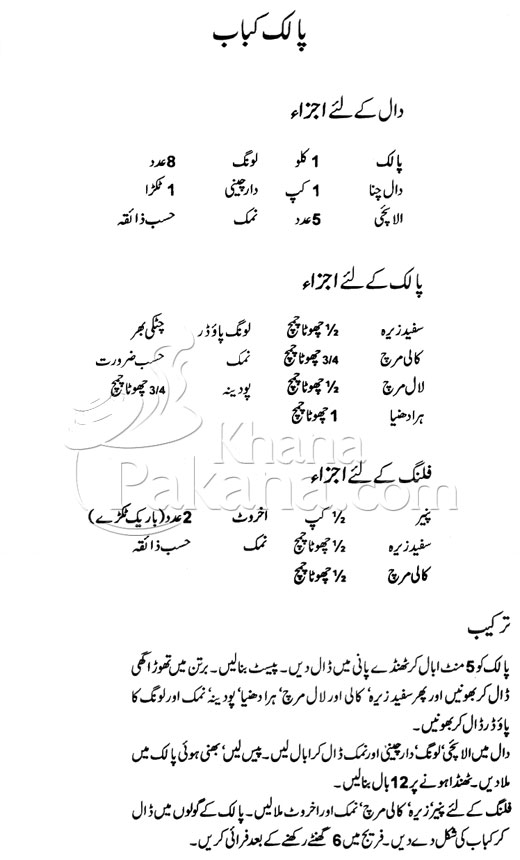 پالک کباب
دال کے لئے اجزاء
پالک 1 کلو لونگ 8 عدد
دال چنا 1 کپ دارچینی 1 ٹکڑا
الائچی 5 عدد نمک حسب ذائقہ
پالک کے لئے اجزاء
سفید زیرہ ½ چھوٹا چمچ لونگ پاؤڈر چٹکی بھر
کالی مرچ 3/4 چھوٹا چمچ نمک حسب ضرورت
لال مرچ ½ چھوٹا چمچ پودینہ 3/4 چھوٹا چمچ
ہرا دھنیا 1 چھوٹا چمچ
Khana
Pakana.com
فلنگ کے لئے اجزاء
پنیر ½ کپ اخروٹ 2 عدد (باریک ٹکڑے)
سفید زیرہ ½ چھوٹا چمچ نمک حسب ذائقہ
کالی مرچ ½ چھوٹا چمچ
ترکیب
پالک کو 5 منٹ ابال کر ٹھنڈے پانی میں ڈال دیں۔ پیسٹ بنالیں۔ برتن میں تھوڑا گھی
ڈال کر بھونیں اور پھر سفید زیرہ' کالی اور لال مرچ' ہرا دھنیا' پودینہ' نمک اور لونگ کا
پاؤڈر ڈال کر بھونیں۔
دال میں الائچی' لونگ' دارچینی اور نمک ڈال کر ابال لیں۔ پیس لیں' بھنی ہوئی پالک میں
ملا دیں۔ ٹھنڈا ہونے پر 12 بال بنالیں۔
فلنگ کے لئے پنیر' زیرہ' کالی مرچ' نمک اور اخروٹ ملالیں۔ پالک کے گولوں میں ڈال
کر کباب کی شکل دے دیں۔ فریج میں 6 گھنٹے رکھنے کے بعد فرائی کریں۔